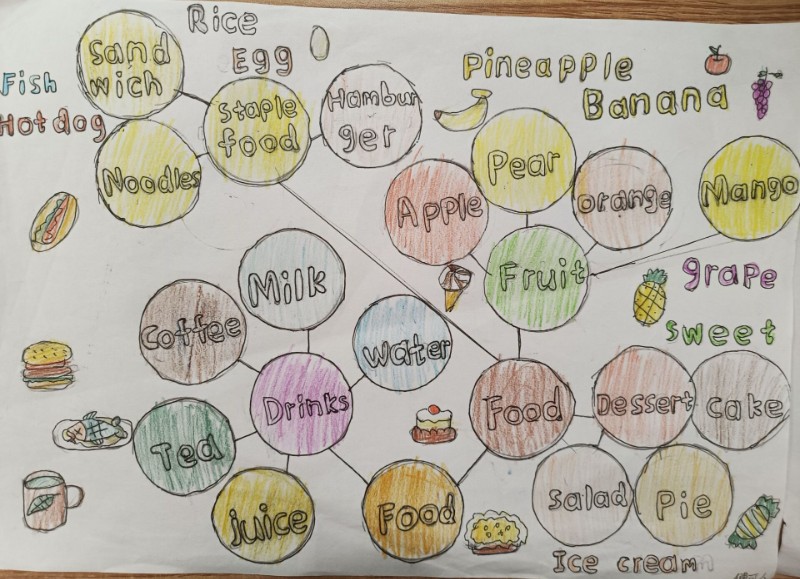 Rice
Egg
Fish
Hotdog
Sand
wich
Staple
food
Hambur
ger
Noodles
Pineapple
Banana
Pear
Apple
orange
Mango
Fruit
grape
sweet
Milk
Coffee
water
Drinks
Tea
juice
Food
Food
Dessert
Cake
Salad
Pie
Ice cream